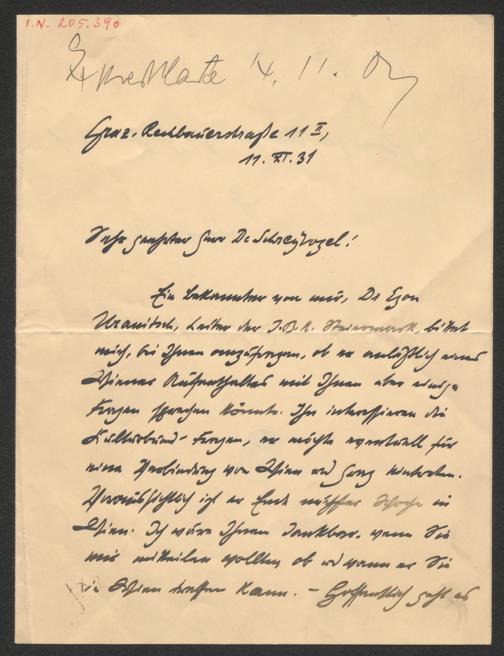 I.N. 205.390
Expresskarte 14. 11.
Graz, Rechbauerstraße 11 II,
11. XI. 31
Sehr geehrter Herr Dr. Schreyvogel!
Ein Bekannter von mir, Dr Egon
Uranitsch, Leiter der J.B.K. Steiermark, bittet
mich, bei Ihnen anzufragen, ob er anläßlich eines
Wiener Aufenthaltes mit Ihnen über einige
Fragen sprechen könnte. Ihn interessieren die
Kulturbund-Fragen, er möchte eventuell für
eine Verbindung von Wien und Graz eintreten.
Voraussichtlich ist er Ende nächster Woche in
Wien. Ich wäre Ihnen dankbar, wenn Sie
mir mitteilen wollten ob und wann er Sie
in Wien treffen kann. – Hoffentlich geht es